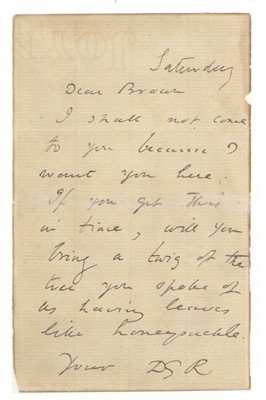 Saturday
Dear Brown
I shall not come
to you because I
want you here.
If you get this
in time, will you
bring a twig of the
tree you spoke of
as having leaves
like honeysuckle.
Your DGR